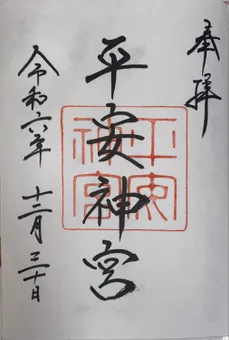 奉拝
平安神宮
平安
神宮
令和六年 十二月 三十日